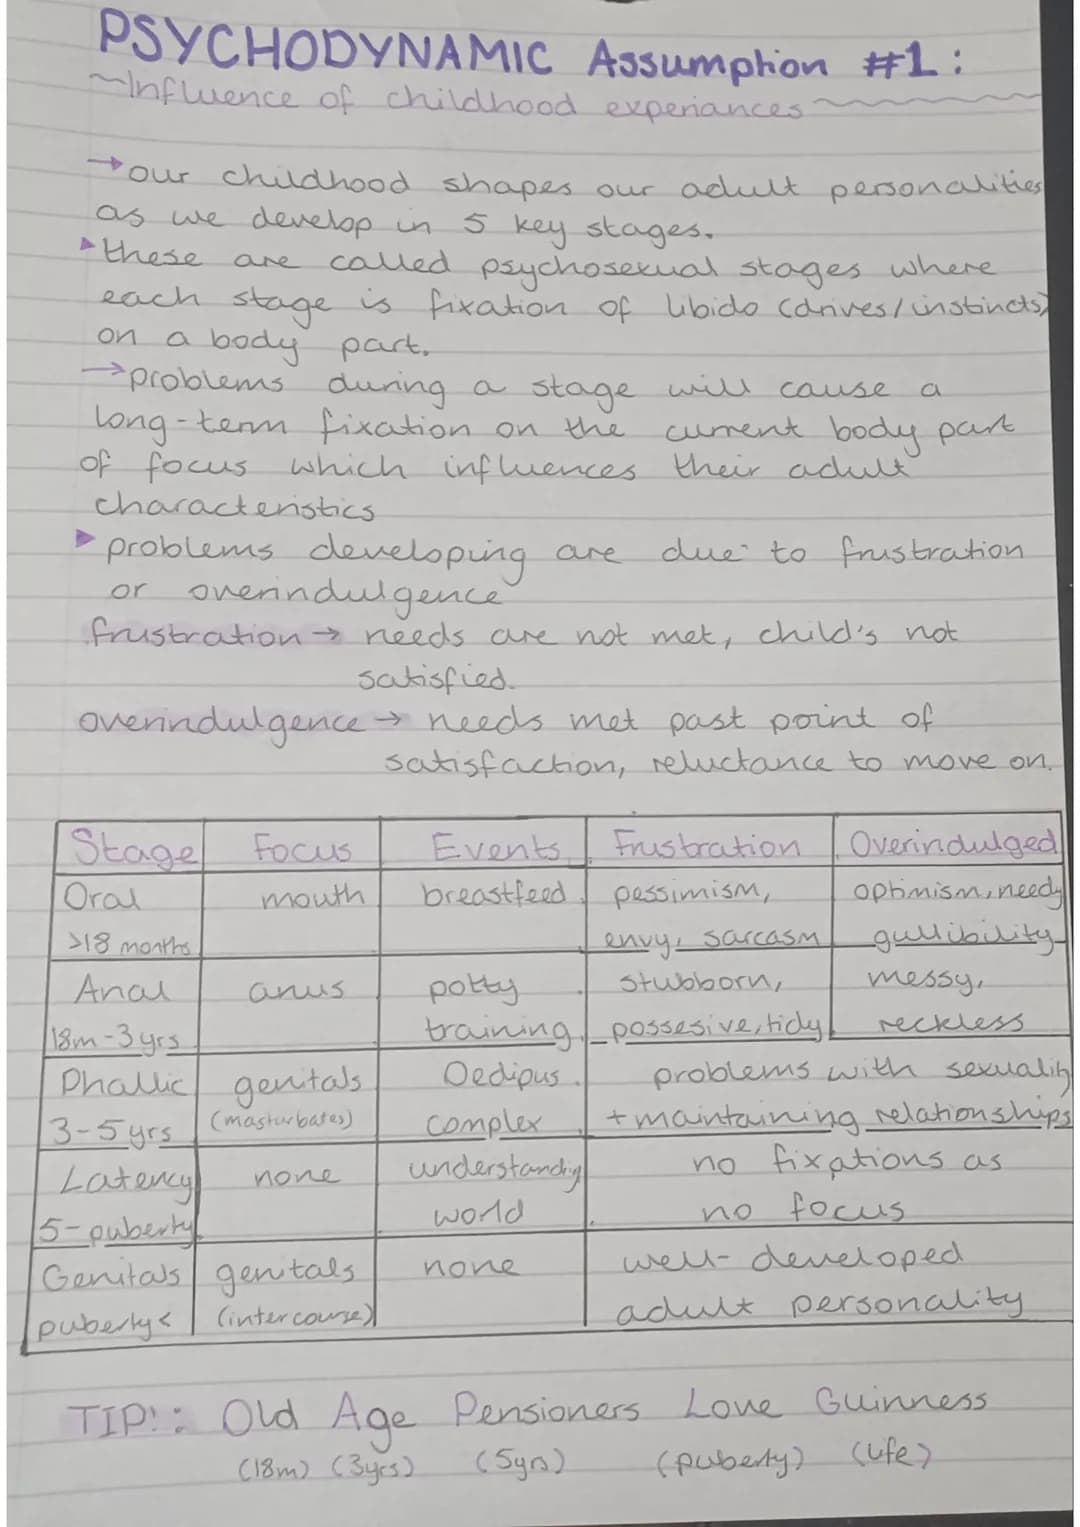 PSYCHODYNAMIC Assumption #1:
~Influence of childhood experiances~
→our childhood shapes our adult personalities
as we develop in 5 key stages.
▸these are called psychosexual stages where
each stage is fixation of libido (drives/instincts)
on a body part.
→problems during a stage will cause a
long-term fixation on the current body part
of focus which influences their adult
characteristics
▸problems developing are due to frustration
or overindulgence
frustration → needs are not met, child's not
satisfied.
overindulgence → needs met past point of
satisfaction, reluctance to move on.
Stage Focus Events Frustration Overindulged
Oral mouth breastfeed pessimism, optimism, needy
>18 months envy, sarcasm gullibility
Anal anus potty stubborn, messy,
18m-3yrs training possesive, tidy reckless
Phallic genitals Oedipus problems with sexuality
3-5yrs (masturbates) complex + maintaining relationships
Latency none understanding no fixations as
5-puberty world no focus
Genitals genitals none well-developed
puberty< (intercourse) adult personality
TIP!: Old Age Pensioners Love Guinness
(18m) (3yrs) (5yrs) (puberty) (life)